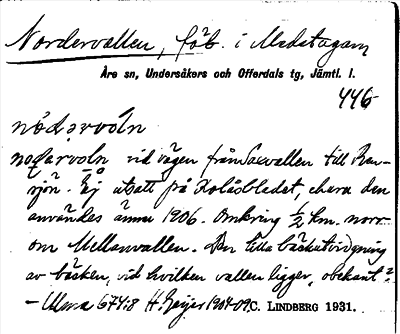 Nordervallen, fäb. i Medstugan
Åre sn, Undersåkers och Offerdals tg, Jämtl. l.
446
nödərvoln
nodarvoln vid vägen från Saxvallen till Ran-
sjön. Ej utsatt på Kolåsbladet, ehuru den
användes ännu 1906. Omkring ½ km. norr
om Mellanvallen. Den lilla bäckutvidgning
av bäcken, vid hvilken vallen ligger, obekant?
– Ulma 674:8 H. Geijer 1904-09. C. LINDBERG 1931.